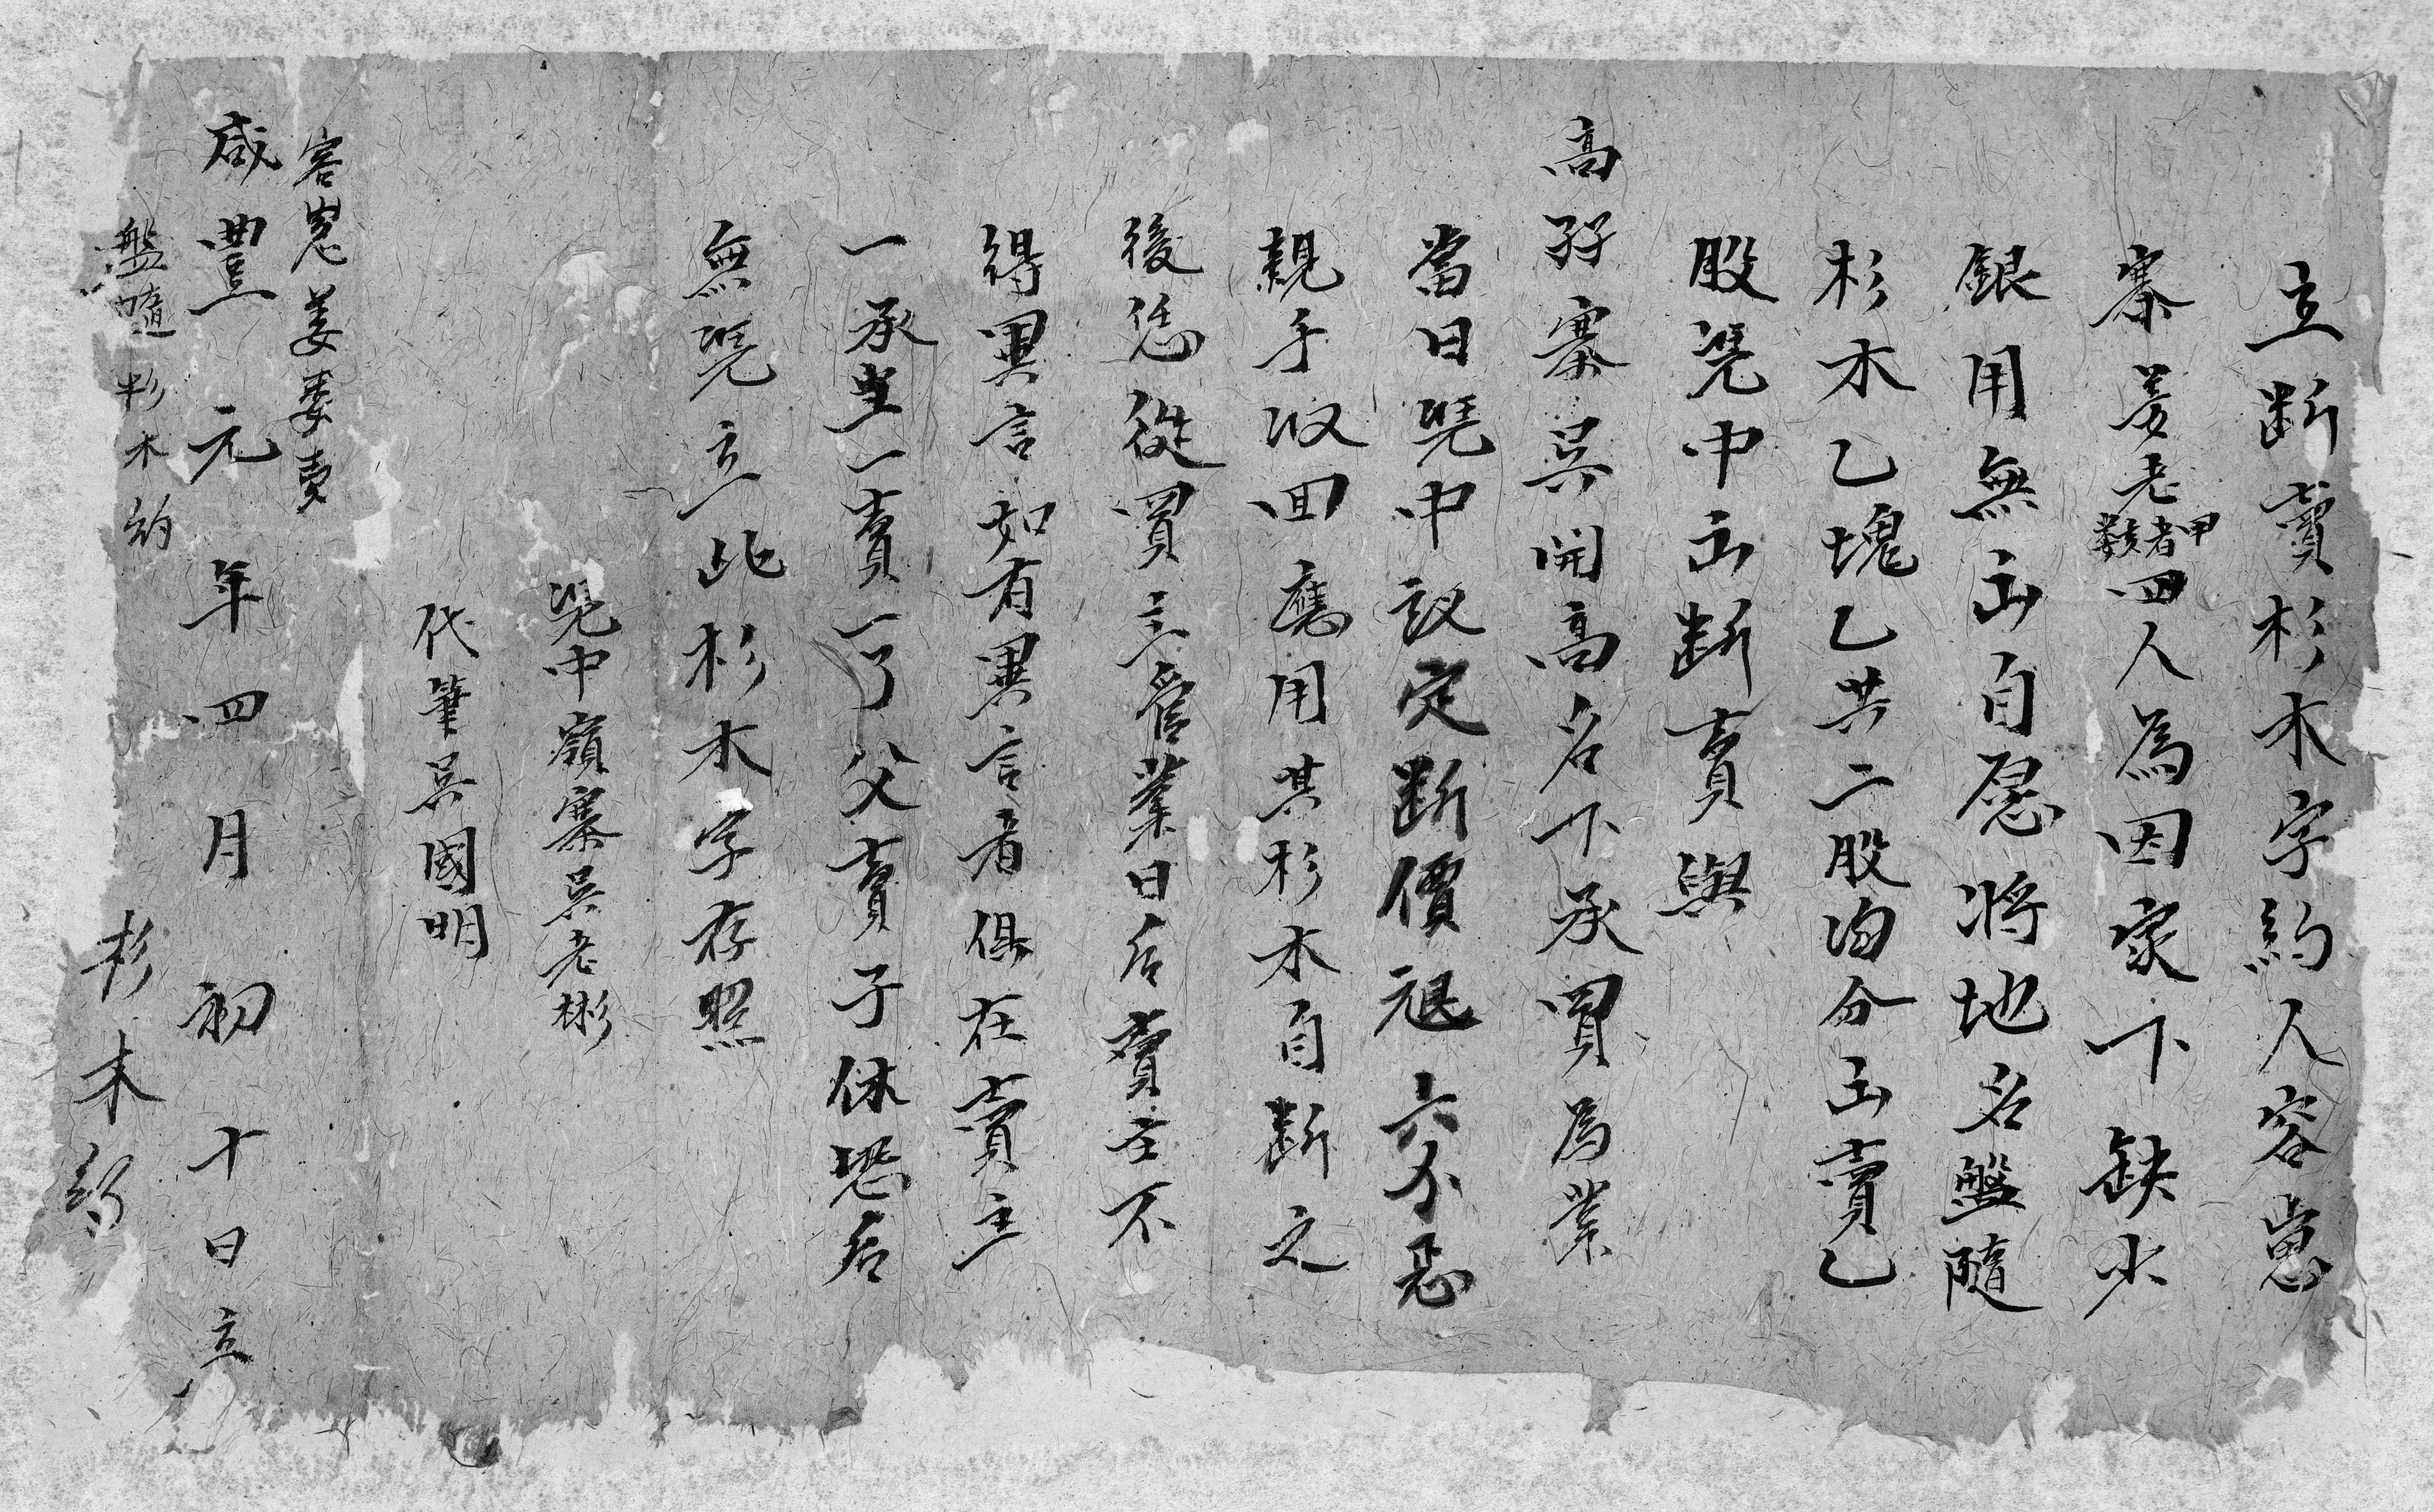 立断賣杉木字約人容嵬
寨姜老甲者歎四人爲因家下缺少
銀用無出自愿將地名盤隨
杉木乙塊乙共二股均分出賣乙
股凴中出断賣與
高孖寨吴開高名下承買爲業
當日凴中議定断價銀六分忍
親手收回應用其杉木自断之
後恁從買主管業日后賣主不
得異言如有異言者俱在賣主
一承当一賣一了父賣子休恐后
無凴立此杉木字存照
凴中嶺寨吴老彬
代筆吴國明
容嵬姜姜賣
咸豐元年四月初十日立
盤隨杉木約
杉木約